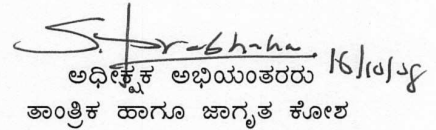 S. Prabhaha. 16/10/08
ಅಧೀಕ್ಷಕ ಅಭಿಯಂತರರು
ತಾಂತ್ರಿಕ ಹಾಗೂ ಜಾಗೃತ ಕೋಶ